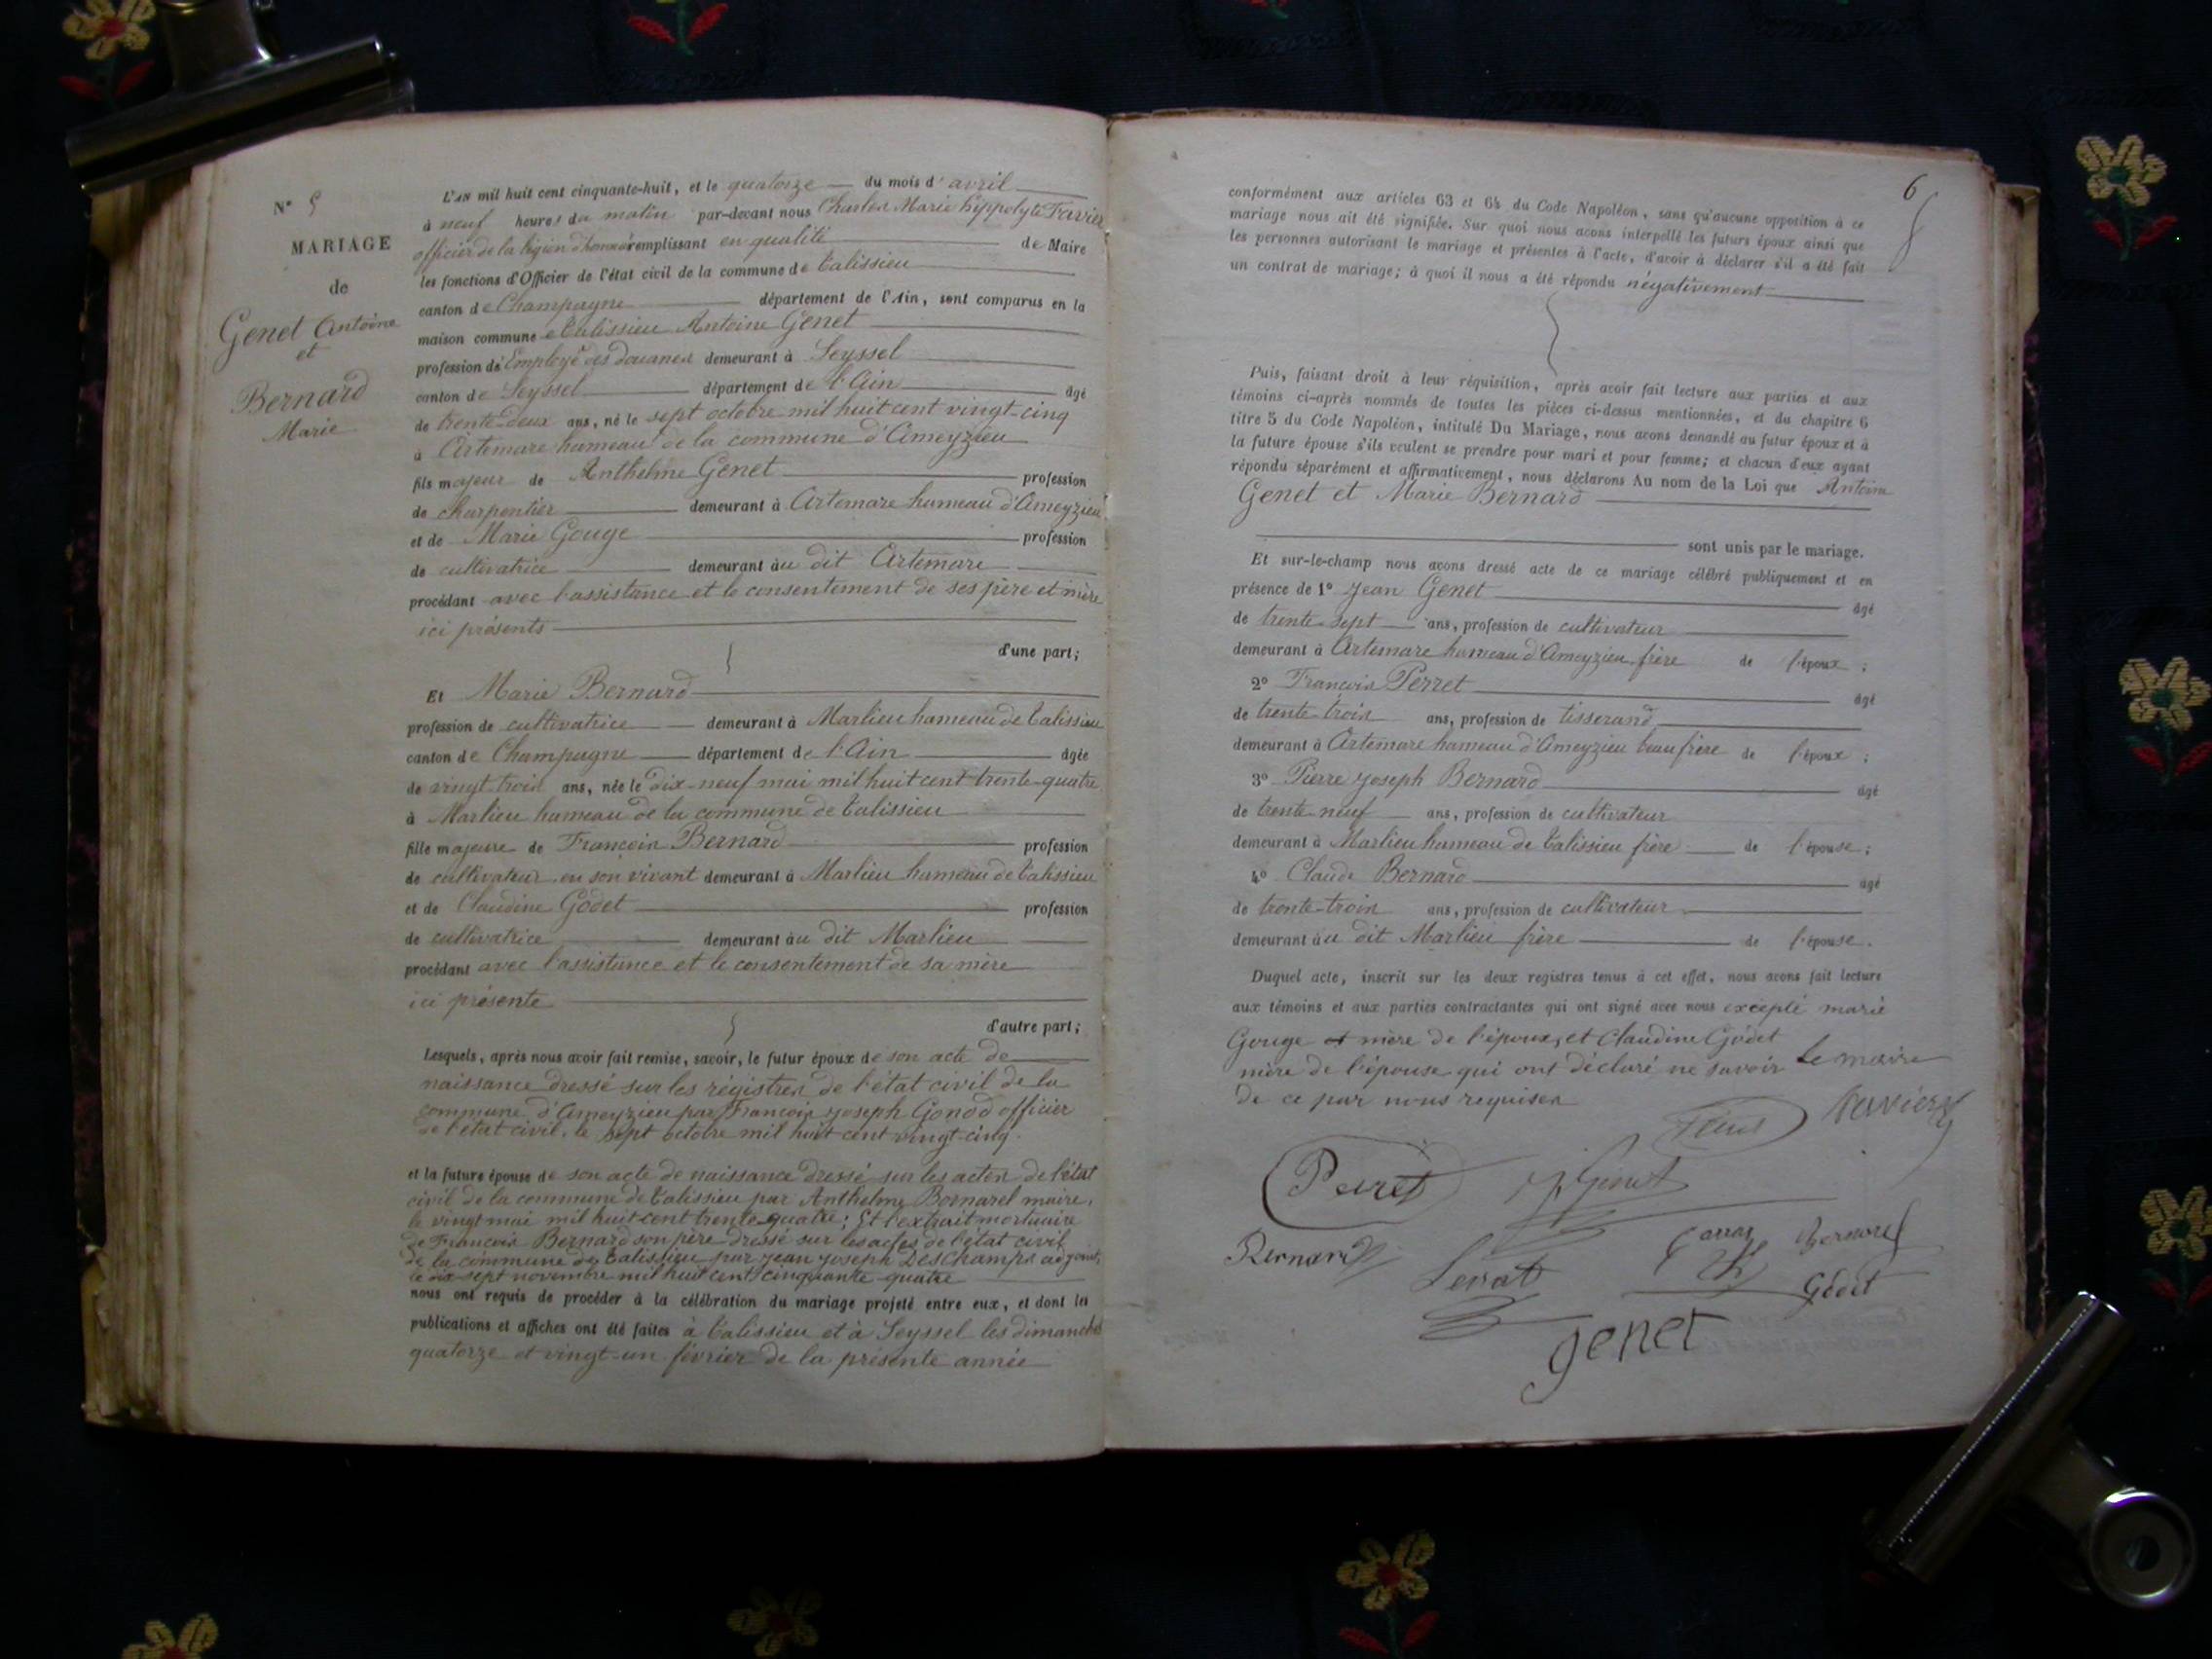 N° 5
MARIAGE
de
Genet Antoine
et
Bernard
Marie
L'AN mil huit cent cinquante-huit, et le quatorze du mois d'avril
à neuf heures du matin par-devant nous Charles Marie hippolyte Favier
officier de la légion d'honneur remplissant en qualité de Maire
les fonctions d'Officier de l'état civil de la commune de Talissieu
canton de Champagne département de l'Ain, sont comparus en la
maison commune de Talissieu Antoine Genet
profession de Employé des douanes demeurant à Seyssel
canton de Seyssel département de l'Ain âgé
de trente-deux ans, né le sept octobre mil huit cent vingt-cinq
à Artemare hameau de la commune d'Ameyzieu
fils majeur de Anthelme Genet profession
de charpentier demeurant à Artemare hameau d'Ameyzieu
et de Marie Gouge profession
de cultivatrice demeurant au dit Artemare
procédant avec l'assistance et le consentement de ses père et mère
ici présents
d'une part;
Et Marie Bernard
profession de cultivatrice demeurant à Marlieu hameau de Talissieu
canton de Champagne département de l'Ain âgée
de vingt trois ans, née le dix-neuf mai mil huit cent trente-quatre
à Marlieu hameau de la commune de Talissieu
fille majeure de François Bernard profession
de cultivateur en son vivant demeurant à Marlieu hameau de Talissieu
et de Claudine Godet profession
de cultivatrice demeurant au dit Marlieu
procédant avec l'assistance et le consentement de sa mère
ici présente
d'autre part;
Lesquels, après nous avoir fait remise, savoir, le futur époux de son acte de
naissance dressé sur les régistres de l'état civil de la
commune d'Ameyzieu par François Joseph Gonod officier
de l'état civil, le sept octobre mil huit cent vingt-cinq.
et la future épouse de son acte de naissance dressé sur les actes de l'état
civil de la commune de Talissieu par Anthelme Bornarel maire,
le vingt mai mil huit cent trente quatre; Et l'extrait mortuaire
de François Bernard son père dressé sur les actes de l'état civil
de la commune de Talissieu par Jean Joseph Deschamps adjoint,
le dix-sept novembre mil huit cent cinquante-quatre
nous ont requis de procéder à la célébration du mariage projeté entre eux, et dont les
publications et affiches ont été faites à Talissieu et à Seyssel les dimanches
quatorze et vingt-un février de la présente année
6
conformément aux articles 63 et 64 du Code Napoléon, sans qu'aucune opposition à ce
mariage nous ait été signifiée. Sur quoi nous avons interpellé les futurs époux ainsi que
les personnes autorisant le mariage et présentes à l'acte, d'avoir à déclarer s'il a été fait
un contrat de mariage; à quoi il nous a été répondu négativement
Puis, faisant droit à leur réquisition, après avoir fait lecture aux parties et aux
témoins ci-après nommés de toutes les pièces ci-dessus mentionnées, et du chapitre 6
titre 5 du Code Napoléon, intitulé Du Mariage, nous avons demandé au futur époux et à
la future épouse s'ils veulent se prendre pour mari et pour femme; et chacun d'eux ayant
répondu séparément et affirmativement, nous déclarons Au nom de la Loi que Antoine
Genet et Marie Bernard
sont unis par le mariage.
Et sur-le-champ nous avons dressé acte de ce mariage célébré publiquement et en
présence de 1° Jean Genet âgé
de trente-sept ans, profession de cultivateur
demeurant à Artemare hameau d'Ameyzieu frère de l'époux;
2° François Perret âgé
de trente-trois ans, profession de tisserand
demeurant à Artemare hameau d'Ameyzieu beau frère de l'époux;
3° Pierre Joseph Bernard âgé
de trente-neuf ans, profession de cultivateur
demeurant à Marlieu hameau de Talissieu frère de l'épouse;
4° Claude Bernard âgé
de trente-trois ans, profession de cultivateur
demeurant au dit Marlieu frère de l'épouse.
Duquel acte, inscrit sur les deux registres tenus à cet effet, nous avons fait lecture
aux témoins et aux parties contractantes qui ont signé avec nous excepté marie
Gouge mère de l'époux, et Claudine Godet
mère de l'épouse qui ont déclaré ne savoir Le maire
de ce par nous requises
Favier
Peiret Genet
Bernard Bernard
Godet
genet